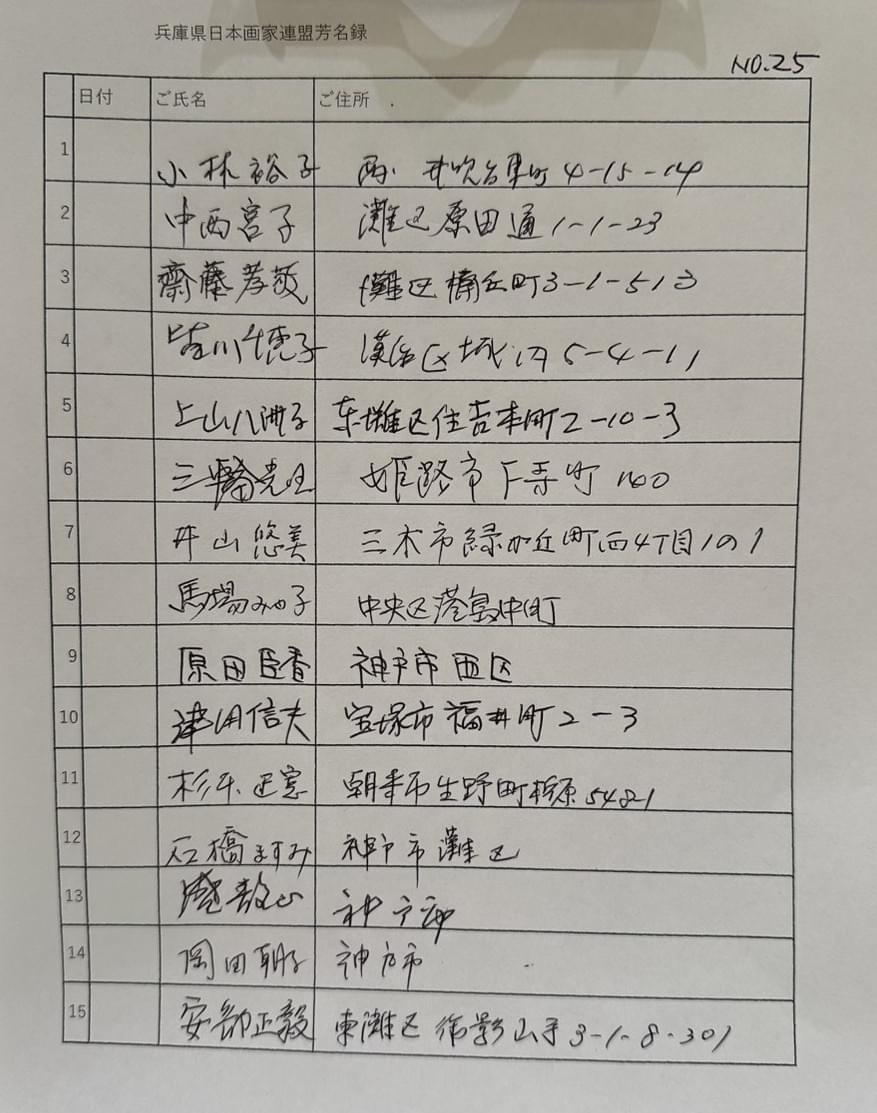 兵庫県日本画家連盟芳名録
NO.25
日付 ご氏名 ご住所
1 小林裕子 西 井吹台東町 4-15-14
2 中西宮子 灘区原田通 1-1-23
3 齋藤孝 灘区 丘町3-1-513
4 皆川 子 区城内5-4-11
5 上山八洲子 东灘区住吉本町2-10-3
6 三 姫路市下寺町 100
7 井山悠美 三木市緑が丘町西4丁目1の1
8 馬場み 子 中央区港島中町
9 原田臣香 神戸市西区
10 津田信夫 宝塚市福井町2-3
11 杉 正憲 朝来市生野町栃原5481
12 石橋ますみ 神戸市灘区
13 神戸市
14 岡田 神戸市
15 安部正毅 東灘区御影山手3-1-8-301